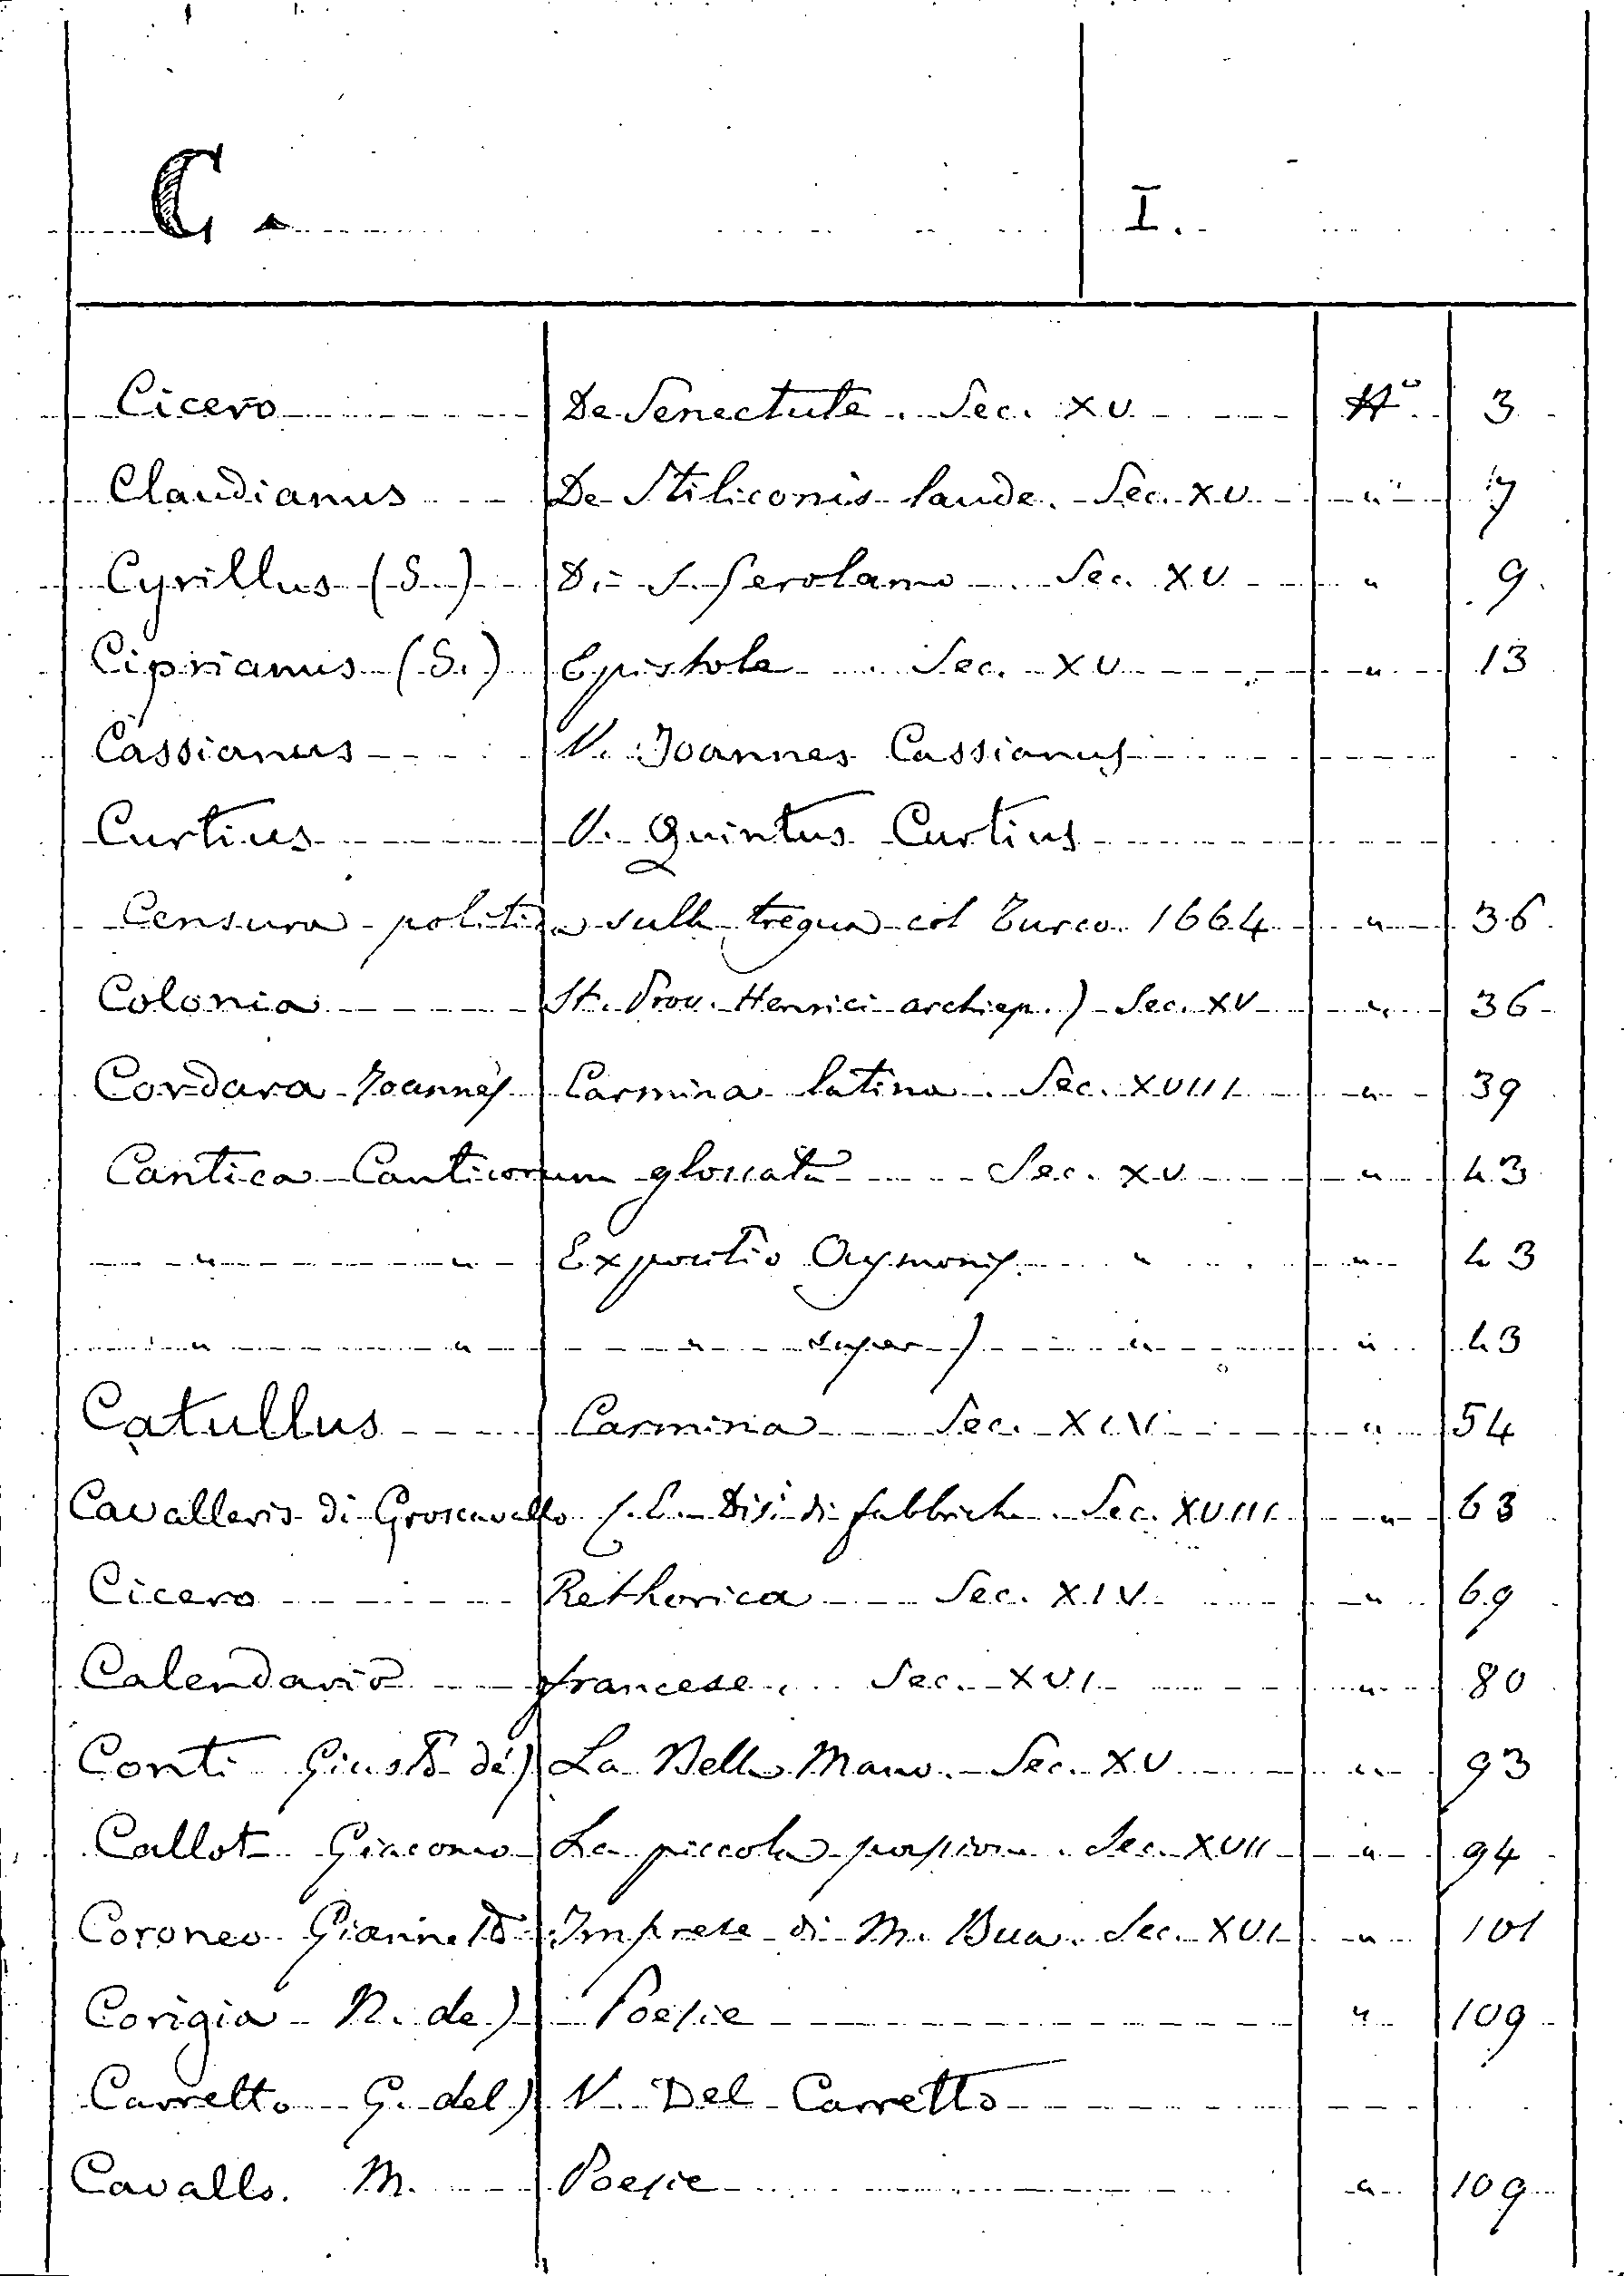 C. I.
Cicero De Senectute. Sec. XV. No 3
Claudianus De Stiliconis laude. Sec. XV. " 7
Cyrillus (S.) Di S. Gerolamo. Sec. XV " 9
Ciprianus (S.) Epistole. Sec. XV " 13
Cassianus V. Joannes Cassianus
Curtius V. Quintus Curtius
Censura politica sulla tregua col Turco. 1664 " 36
Colonia St. Prov. Henrici archiep.) Sec. XV " 36
Cordara Joannes Carmina latina. Sec. XVIII " 39
Cantica Canticorum glossata Sec. XV " 43
" " Expositio Aymonis " " 43
" " " super) " " 43
Catullus Carmina Sec. XIV " 54
Cavalleris di Groscavallo C. Dis. di fabbriche. Sec. XVIII " 63
Cicero Rethorica Sec. XIV " 69
Calendario francese. Sec. XVI " 80
Conti Giusto de') La Bella Mano. Sec. XV " 93
Callot Giacomo La piccola passione. Sec. XVII " 94
Coroneo Giannetto Imprese di M. Bua. Sec. XVI " 101
Corigia N. de) Poesie " 109
Carretto G. del) V. Del Carretto
Cavallo. M. Poesie " 109